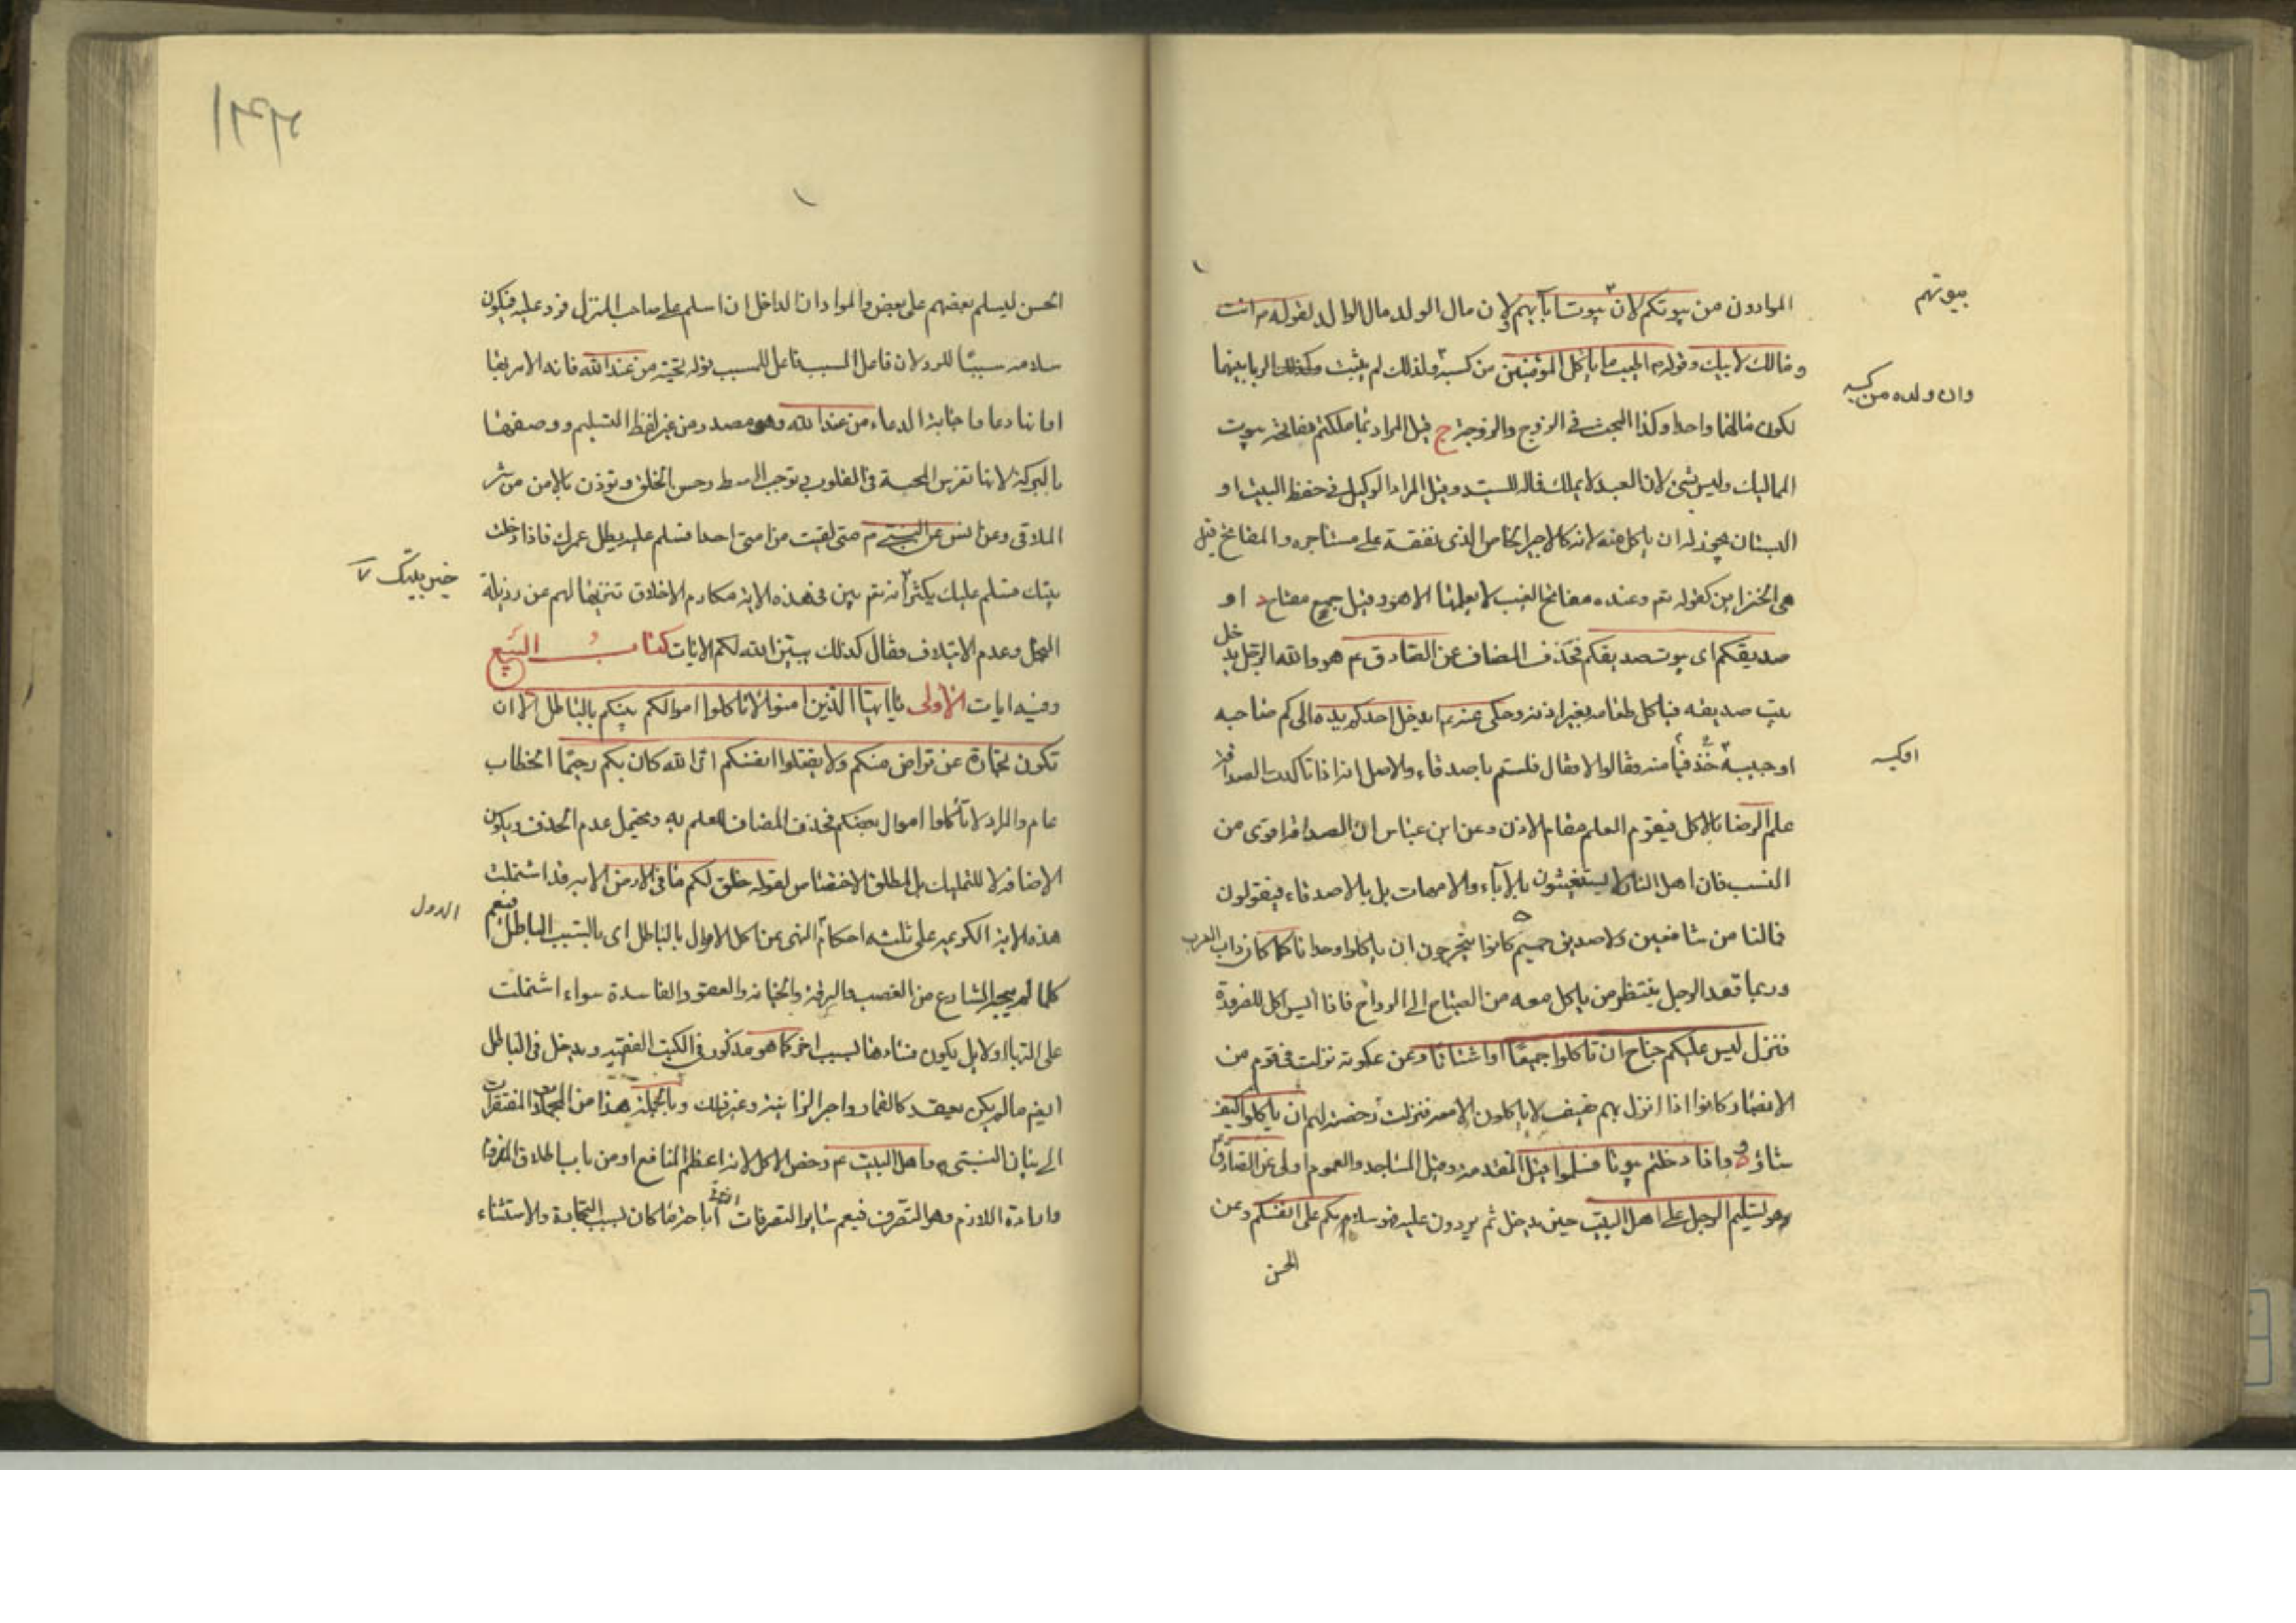 المراد من بيوتكم لان بيوت ابائهم لان مال الولد مال الوالد لقوله ص انت
بيوتهم
ومالك لابيك وقوله ص اطيب ما ياكل المؤمنين من كسبه ولذلك لم يثبت الربا بينهما
وان ولده من كسبه
لكون مالهما واحدا وكذا البحث فى الزوج والزوجة ج قيل المراد بما ملكتم مفاتحه بيوت
المماليك وليس بشئ لان العبد لا يملك فماله للسيد وقيل المراد الوكيل فى حفظ البيت او
البستان يجوز له ان ياكل منه لانه كالاجير الخاص الذى نفقته على مستاجره والمفاتح قيل
هى الخزاين كقوله تع وعنده مفاتح الغيب لا يعلمها الا هو وقيل جمع مفتاح د او
صديقكم اى بيوت صديقكم فحذف المضاف عن الصادق ع هو والله الرجل يدخل
بيت صديقه فياكل طعامه بغير اذنه وحكى عنه ع ايدخل احدكم يده الى كم صاحبه
او جيبه فياخذ منه فقالوا لا فقال فلستم باصدقاء والاصل انه اذا تاكدت الصداقة
او كيسه
علم الرضا بالاكل فيقوم العلم مقام الاذن وعن ابن عباس ان الصداقة اقوى من
النسب فان اهل النار لا يستغيثون بالاباء والامهات بل بالاصدقاء فيقولون
فمالنا من شافعين ولا صديق حميم ه كانوا يتحرجون ان ياكلوا وحدانا كما كان داب العرب
وربما قعد الرجل ينتظر من ياكل معه من الصباح الى الرواح فاذا ايس اكل للضرورة
فنزل ليس عليكم جناح ان تاكلوا جميعا او اشتاتا وعن عكرمة نزلت فى قوم من
الانصار كانوا اذا نزل بهم ضيف لا ياكلون الا معه فنزلت رخصة لهم ان ياكلوا كيف
شاؤا و واذا دخلتم بيوتا فسلموا قيل المتقدمه وقيل المساجد والعموم اولى عن الصادق ع
هو تسليم الرجل على اهل البيت حين يدخل ثم يردون عليه فهو سلامكم على انفسكم وعن
الحسن
الحسن ليسلم بعضهم على بعض والمراد ان الداخل اذا سلم على صاحب المنزل فرد عليه فيكون
سلامه سببا للرد لان فاعل السبب فاعل للمسبب قوله تحية من عند الله فانه الامر بها
اما انها دعا واجابة الدعاء من عند الله وهو مصدر من غير لفظ التسليم ووصفها
بالبركة لانها تغرس المحبة فى القلوب وتوجب البسط وحسن الخلق وتوذن بالامن من شر
الملاقى وعن انس عن النبى ص متى لقيت من امتى احدا فسلم عليه يطل عمرك فاذا دخلت
بيتك فسلم عليك يكثر خير بيتك انه تع بين فى هذه الاية مكارم الاخلاق تنزيها لهم عن رذيلة
خير بيتك
البخل وعدم الايتلاف فقال كذلك يبين الله لكم الايات كتاب البيع
وفيه ايات الاولى يا ايها الذين امنوا لا تاكلوا اموالكم بينكم بالباطل الا ان
تكون تجارة عن تراض منكم ولا تقتلوا انفسكم ان الله كان بكم رحيما الخطاب
عام والمراد لا تاكلوا اموال بعضكم فحذف المضاف للعلم به ويحتمل عدم الحذف ويكون
الاضافة لا للتمليك بل لمطلق الاختصاص لقوله خلق لكم ما فى الارض الاية وقد اشتملت
هذه الاية الكريمه على ثلثه احكام النهى عن اكل الاموال بالباطل اى بالسبب الباطل فيعم
الاول
كلما لم يبحه الشارع من الغصب والسرقة والخيانة والعقود الفاسدة سواء اشتملت
على الربا اولا بل يكون فسادها لسبب اخر كما هو مذكور فى الكتب الفقهيه ويدخل فى الباطل
ايض ما لم يكن بعقد كالقمار واجر الزانية وغير ذلك وبالجملة هذا من المجملات المفتقرات
الى بيان النبى ص واهل البيت ع وخص الاكل لانه اعظم المنافع او من باب اطلاق الملزوم
وارادة اللازم وهو التصرف فيعم ساير التصرفات اباحة ما كان بسبب التجارة والاستثناء